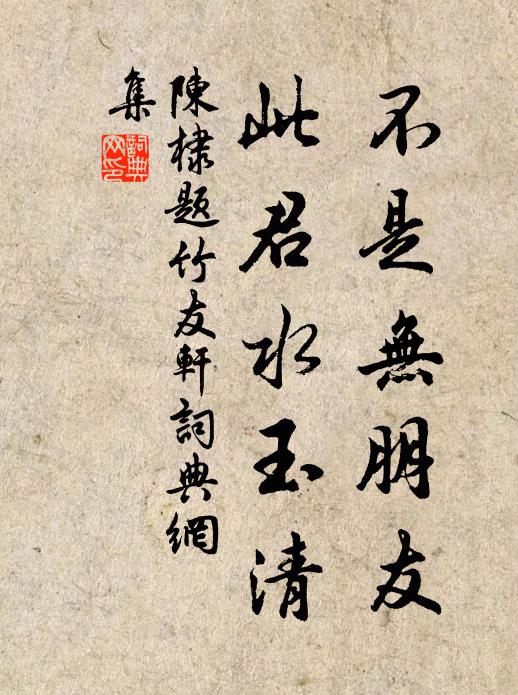 不是無朋友
此君水玉清
陳棣題竹友軒詞典網
集
詞典网印